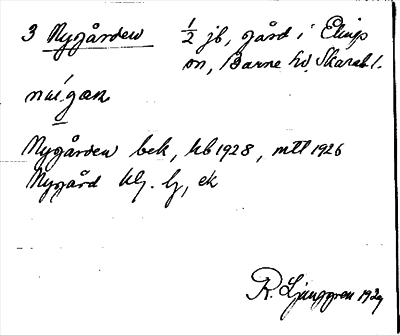 3 Nygården ½ jb, gård i Elings
sn, Barne hd, Skarab l.
Nygården bek, kb 1928, mtl 1926
Nygård ek
R. Ljunggren 1929